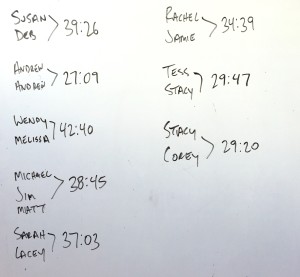 SUSAN
DEB > 39:26
ANDREW
ANDREW > 27:09
WENDY
MELISSA > 42:40
MICHAEL
JIM > 38:45
MATT
SARAH
LACEY > 37:03
RACHEL
JAMIE > 34:39
TESS
STACY > 29:47
STACY
COREY > 29:20